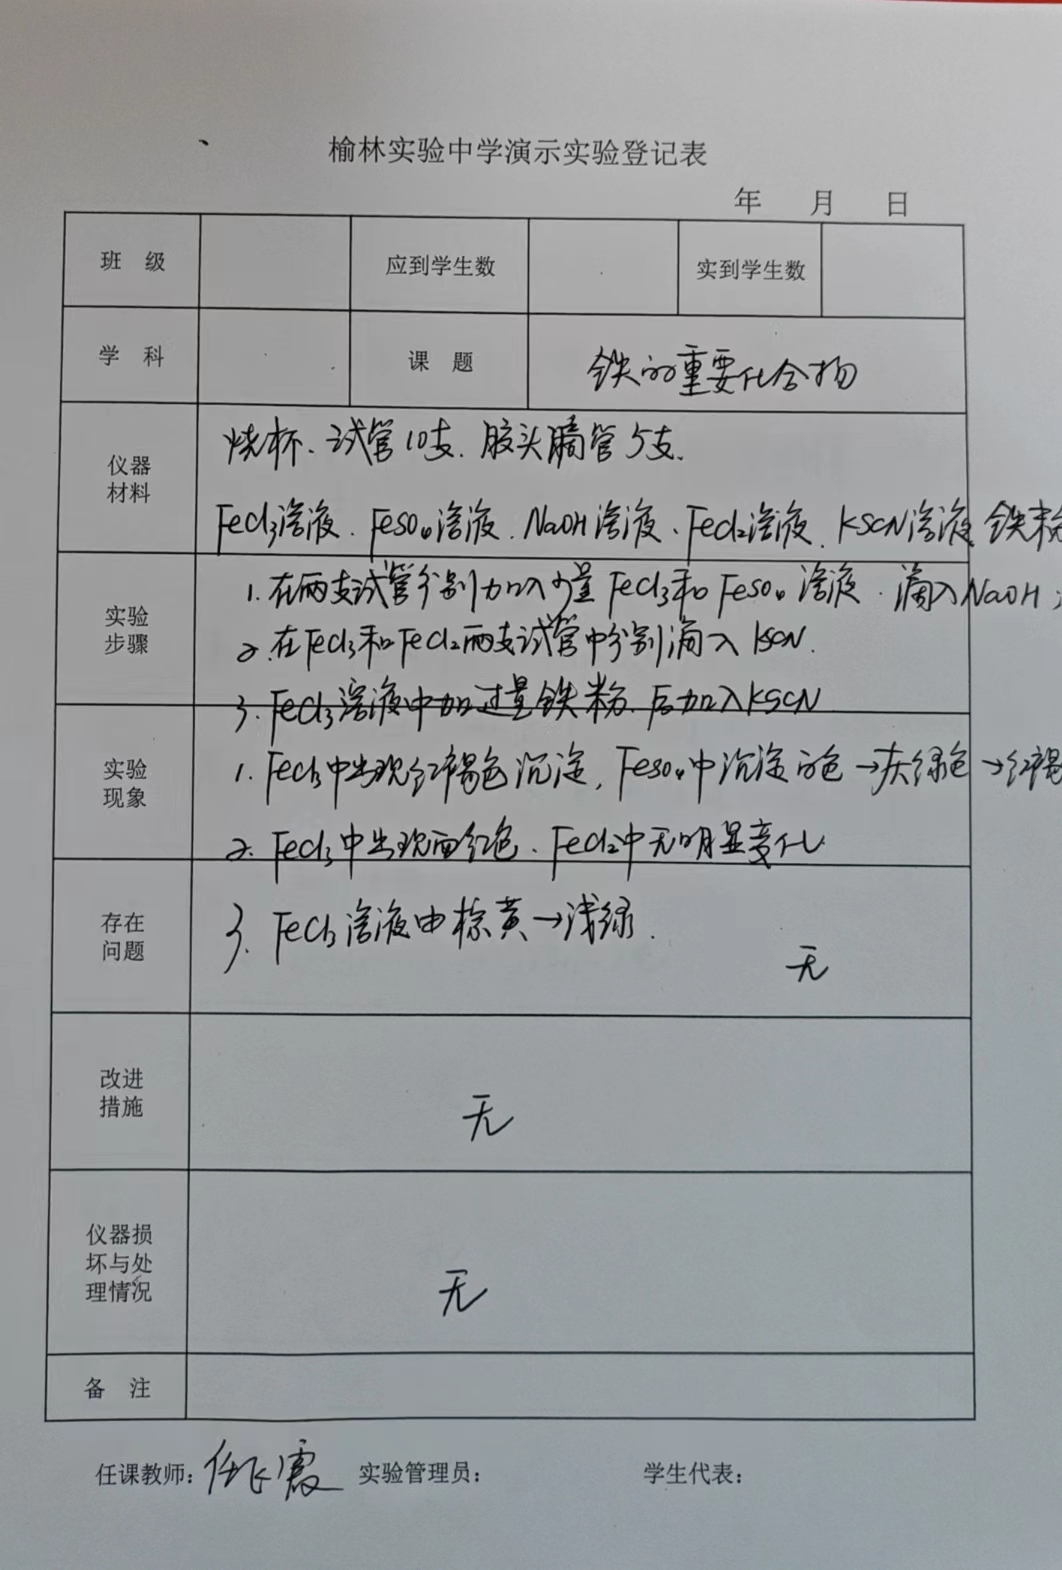 榆林实验中学演示实验登记表
年 月 日
班 级 应到学生数 实到学生数
学 科 课 题 铁的重要化合物
仪器材料 烧杯、试管10支、胶头滴管5支、
FeCl3溶液、FeSO4溶液、NaOH溶液、FeCl2溶液、KSCN溶液 铁粉
实验步骤 1. 在两支试管分别加入少量FeCl3和FeSO4溶液、滴入NaOH
2. 在FeCl3和FeCl2两支试管中分别滴入KSCN.
3. FeCl3溶液中加过量铁粉、后加入KSCN
实验现象 1. FeCl3中出现红褐色沉淀, FeSO4中沉淀白色→灰绿色→红褐
2. FeCl3中出现血红色、FeCl2中无明显变化
存在问题 3. FeCl3溶液由棕黄→浅绿.
无
改进措施 无
仪器损坏与处理情况 无
备 注
任课教师: 任飞霞 实验管理员: 学生代表: